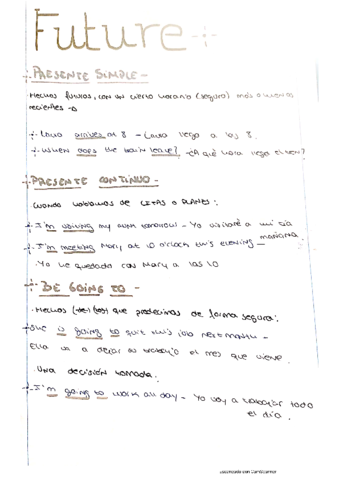 Future
PRESENTE SIMPLE -
· Hechos futuros, con un cierto horario (seguro) más o menos
recientes -
- Laura arrives at 8 - Laura llega a las 8.
- When does the train leave? - ¿A qué hora llega el tren?
PRESENTE CONTINUO -
· Cuando hablamos de CITAS o PLANES:
- I'm visiting my aunt tomorrow - Yo visitaré a mi tía
mañana.
- I'm meeting Mary at 10 o'clock this evening -
Yo he quedado con Mary a las 10
BE GOING TO -
· Hechos que predecimos de forma segura:
- She is going to quit this job next month -
Ella va a dejar su trabajo el mes que viene.
· Una decisión tomada:
- I'm going to work all day - Yo voy a trabajar todo
el día.
Escaneado con CamScanner